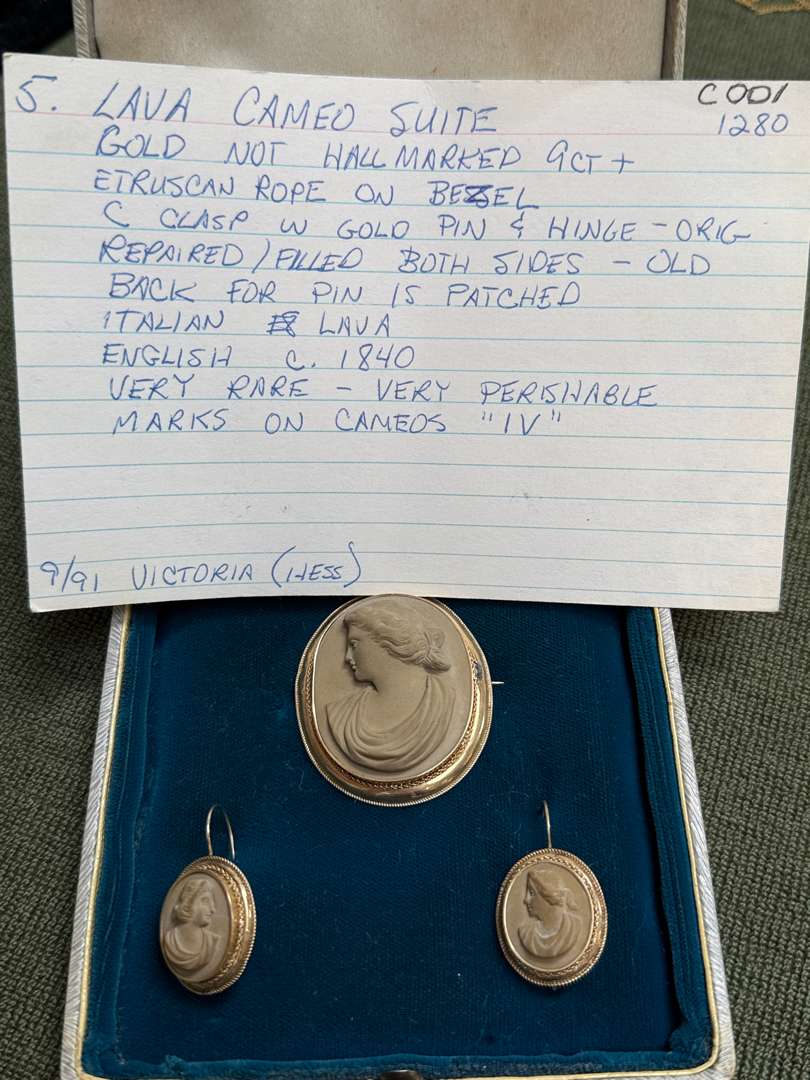 5. LAVA CAMEO SUITE
C001
1280
GOLD NOT HALLMARKED 9CT +
ETRUSCAN ROPE ON BEZEL
C CLASP W GOLD PIN & HINGE - ORIG
REPAIRED / FILLED BOTH SIDES - OLD
BACK FOR PIN IS PATCHED
ITALIAN LAVA
ENGLISH C. 1840
VERY RARE - VERY PERISHABLE
MARKS ON CAMEOS "IV"
9/91 VICTORIA (HESS)